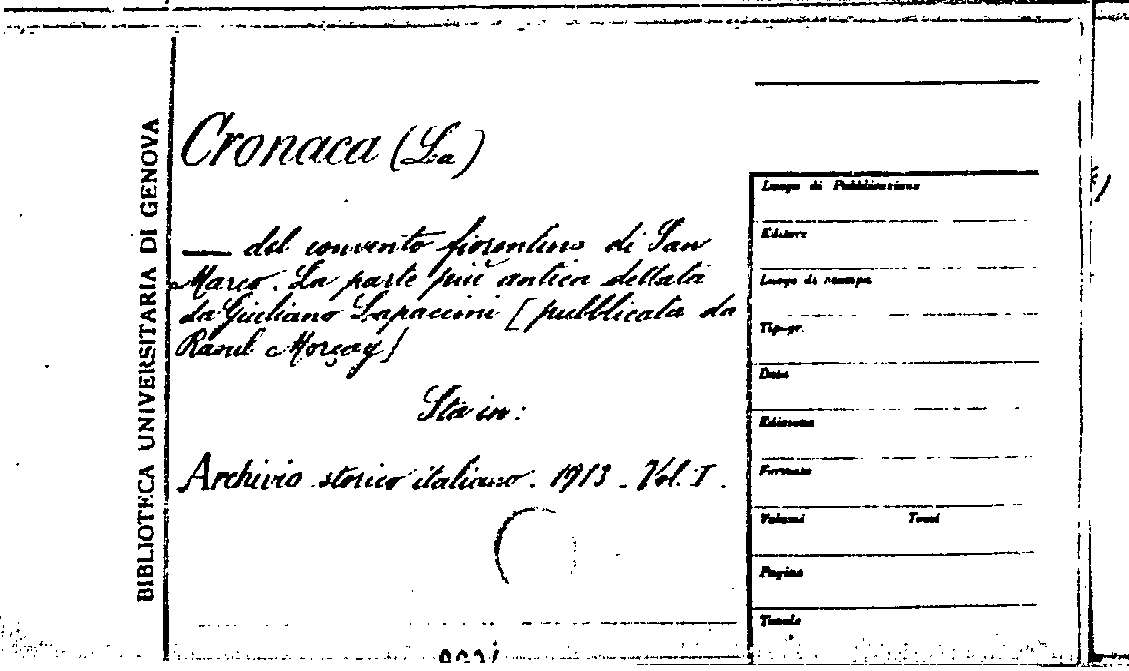 BIBLIOTECA UNIVERSITARIA DI GENOVA
Cronaca (La)
— del convento fiorentino di San
Marco. La parte più antica dettata
da Giuliano Lapaccini [pubblicata da
Raoul Morçay]
Sta in:
Archivio storico italiano. 1913. Vol. I.
Luogo di Pubblicazione
Editore
Luogo di stampa
Tipogr.
Data
Edizione
Formato
Volumi Tomi
Pagine
Tavole